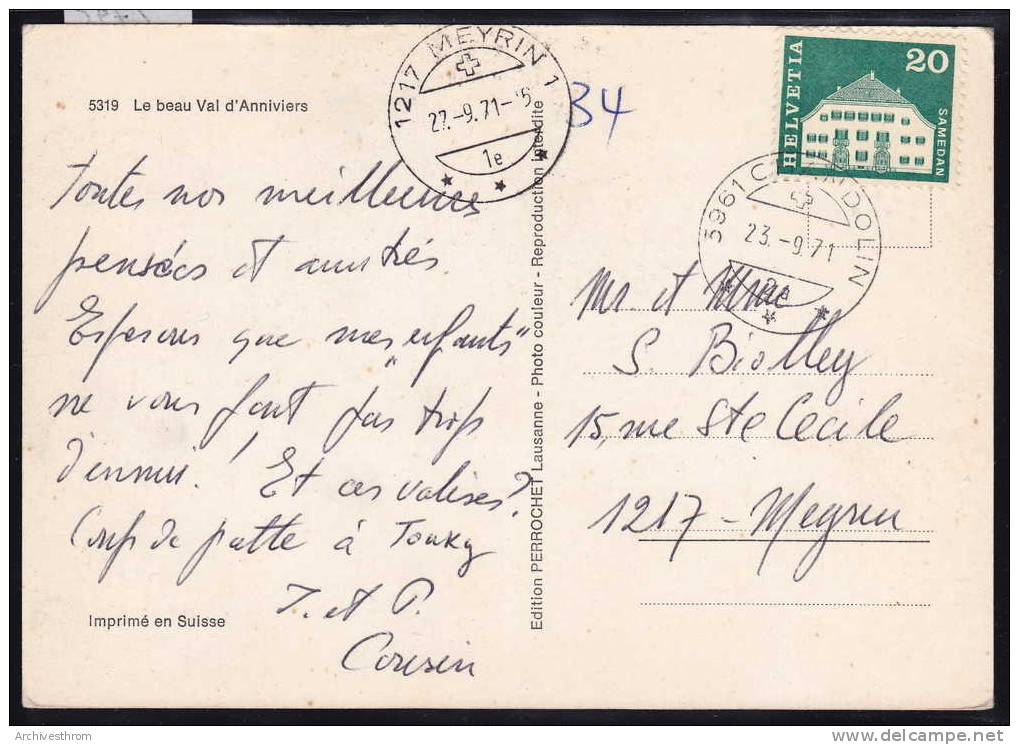 5319 Le beau Val d'Anniviers
Toutes nos meilleures
pensées et amitiés.
Esperons que mes "enfants"
ne vous font pas trop
d'ennui! Et ces valises?
Coup de patte à Touky
J. et P.
Cousin
Imprimé en Suisse
Edition PERROCHET Lausanne - Photo couleur - Reproduction interdite
1217 MEYRIN 1
27.-9.71-
1e
34
HELVETIA
20
SAMEDAN
3961 CHANDOLIN
23.-9.71
Mr. et Mme
S. Biolley
15, rue Ste Cecile
1217 - Meyrin
Archivesthrom
www.delcampe.net